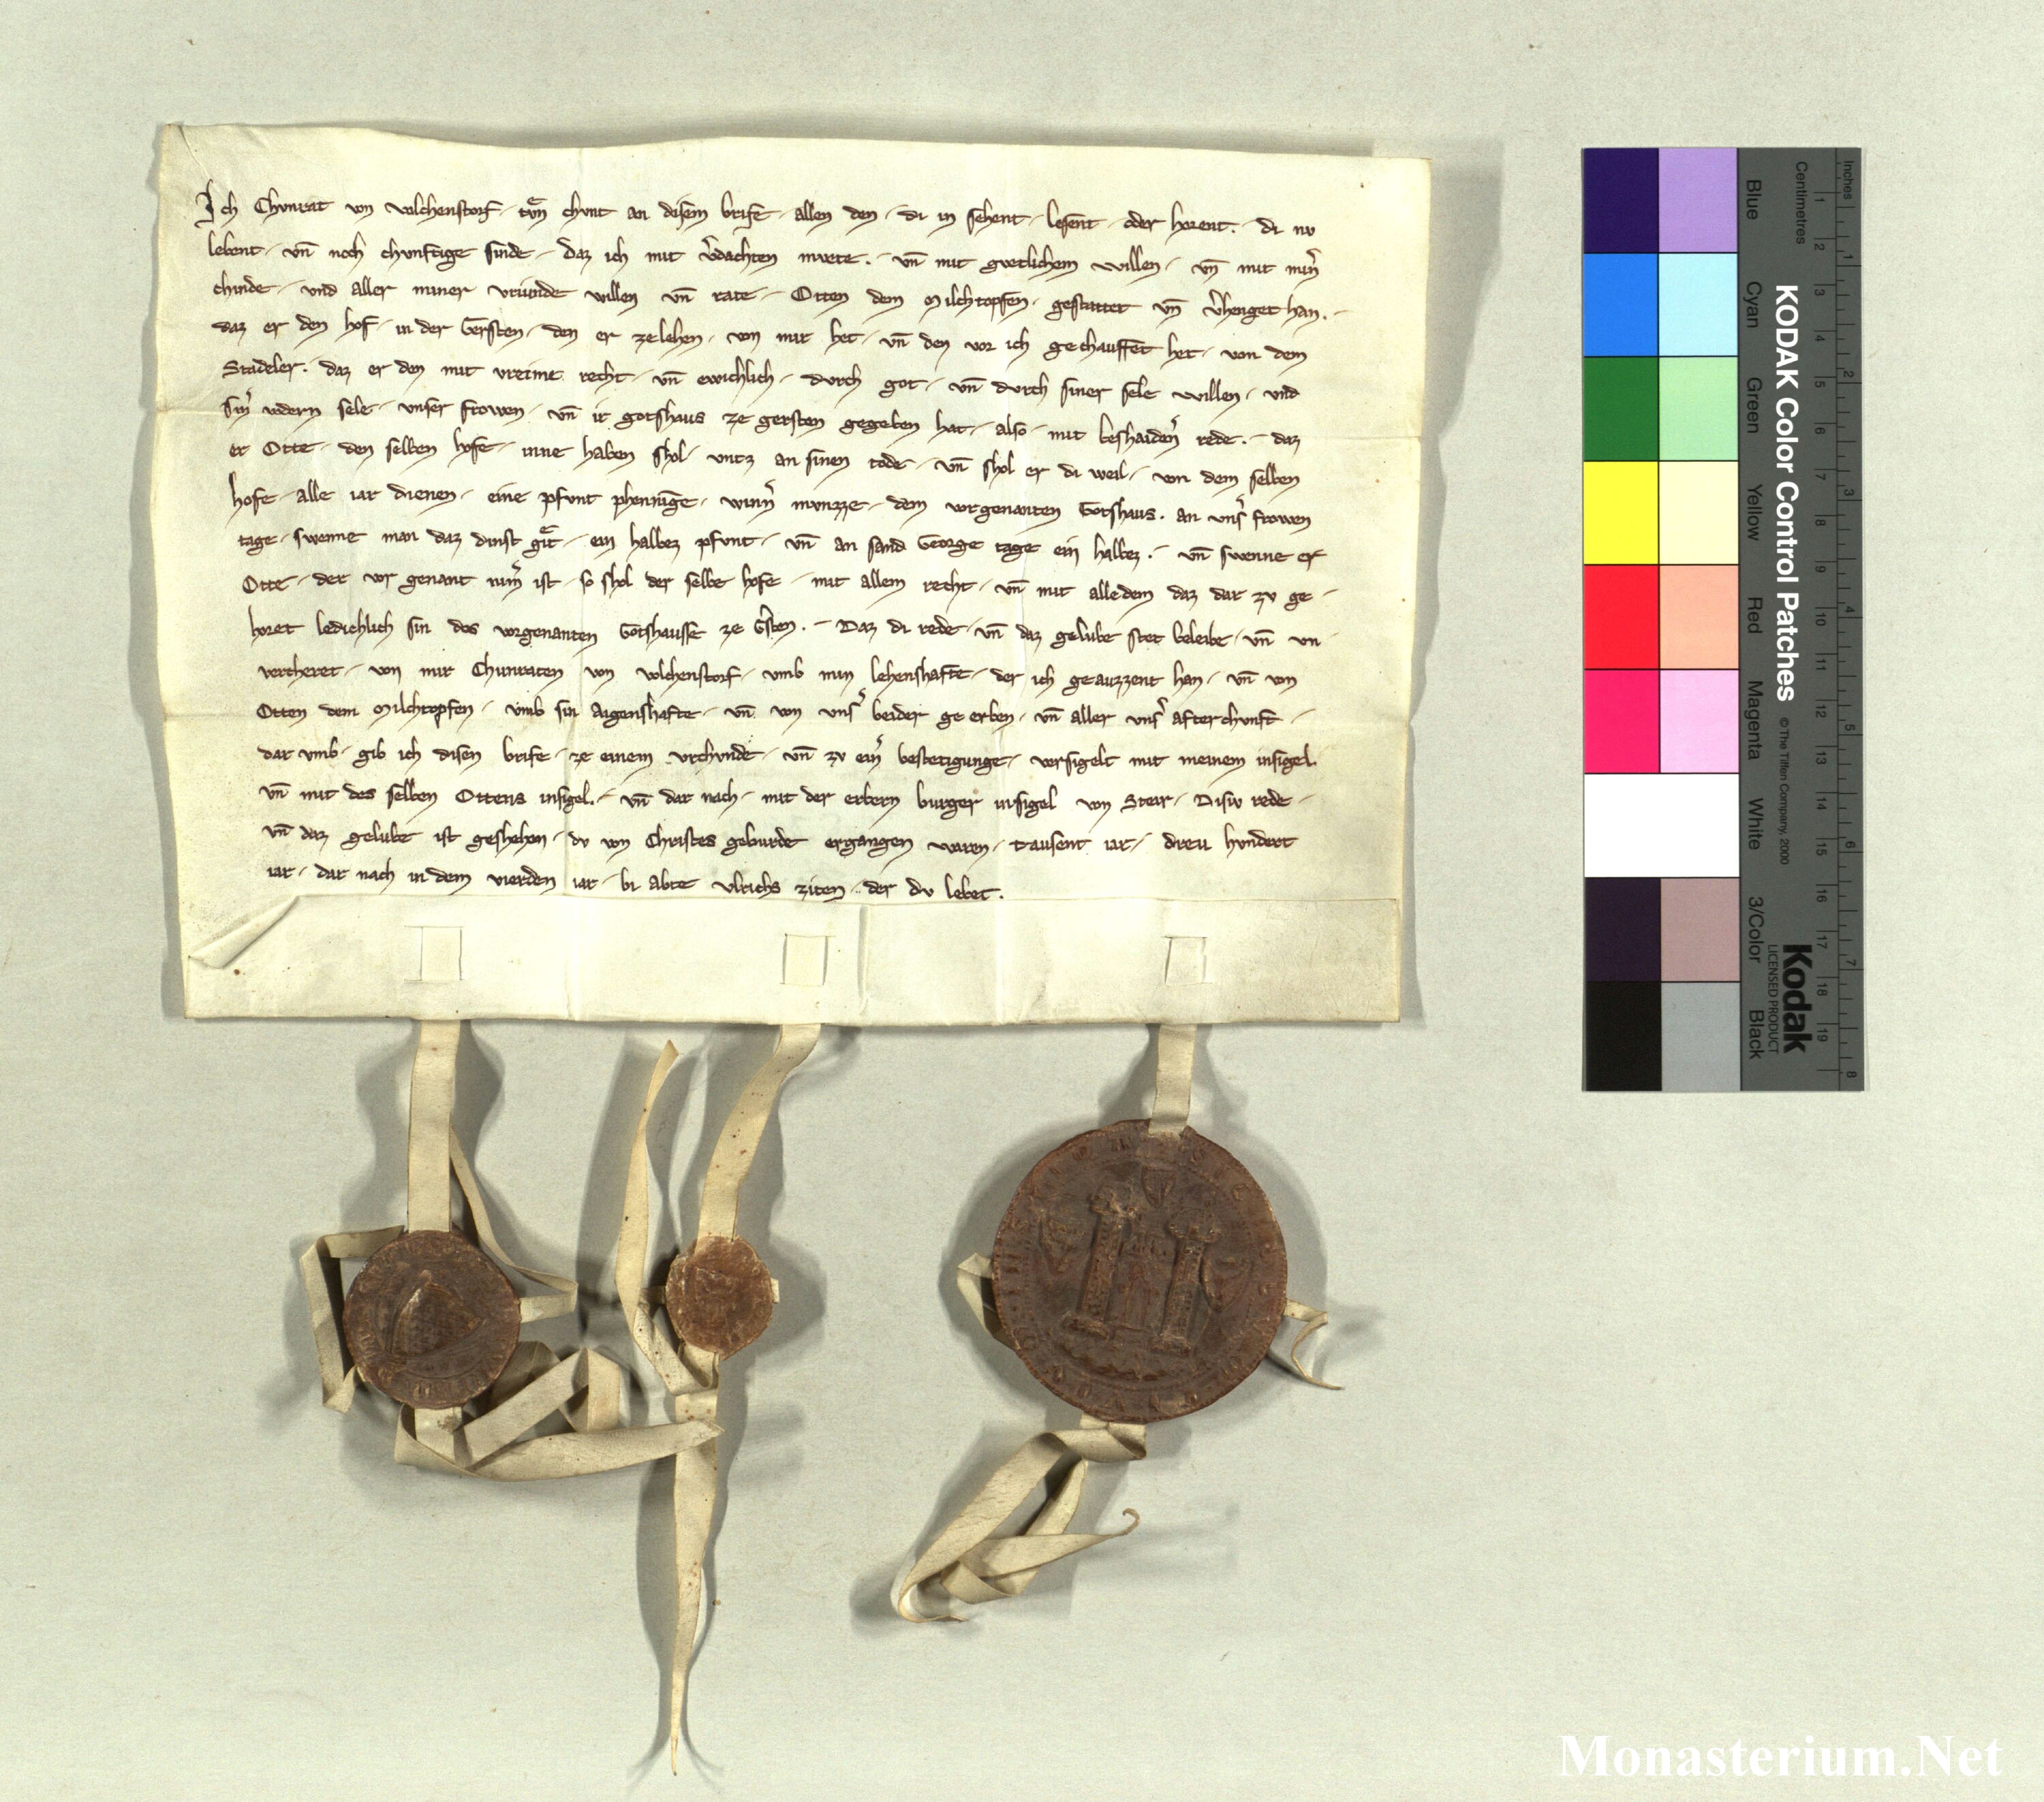 Ich Chvnrat von volchenstorf / tvͦn chvnt an disem brife / allen den / di in sehent / lesent / oder horent. di nv
lebent / vn̄ noch chvnftige sinde / daz ich mit v̓dachten mvete. / vn̄ mit gvetlichem willen / vn̄ mit min̓
chinde / vnd aller miner vriunde willen vn̄ rate / Otten dem Milchtopfen / gestattet vn̄ v̓henget han. /
daz er den hof / in der Gersten / den er ze lehen / von mir het / vn̄ den vor ich gechauffet het / von dem
Stadeler. daz er den mit vreime recht / vn̄ ewichlich / durch got / vn̄ durch siner sele willen / vnd
sin̓ vodern sele / vnser frowen / vn̄ ir gotshaus ze gersten gegeben hat / also / mit beshaiden̓ rede. / daz
er Otte / den selben hofe / inne haben shol / vntz an sinen tode / vn̄ shol er di weil / von dem selben
hofe / alle iar dienen / eine pfvnt phenninge / winn̓ mvnzze / dem vorgenanten Gotshaus. an vns̓ frowen
tage / swenne man daz dinst git / ein halbez pfvnt / vn̄ an sand George tage ein halbez. / vn̄ swenne er
Otte / der vor genant nim̓ ist / so shol der selbe hofe / mit allem recht / vn̄ mit alledem daz dar zv ge /
horet ledichlich sin des vorgenanten Gotshausse ze G̓sten. / Daz di rede / vn̄ daz gelube stet beleibe / vn̄ vn /
vercheret / von mir Chunraten von volchenstorf / vmb min lehenshafte / der ich geauzzent han / vn̄ von
Otten dem Milchtopfen / vmb sin Aigenshafte / vn̄ von vns̓ beider ge erben / vn̄ aller vns̓ afterchvnft /
dar vmb / gib ich disen brife / ze einem vrchvnde / vn̄ zv ein̓ bestetigunge / versigelt mit meinem insigel.
vn̄ mit des selben Ottens insigel. / vn̄ dar nach / mit der erbern burger insigel von Steir / Disiv rede /
vn̄ daz gelube ist geshehen / dv von Christes geburde ergangen waren / tausent iar / dreu hvndert
iar / dar nach in dem vierden iar / bi abte vlrichs ziten / der dv lebet.
Inches
Centimetres
1 2 3 4 5 6 7 8
1 2 3 4 5 6 7 8 9 10 11 12 13 14 15 16 17 18 19
KODAK Color Control Patches
© The Tiffen Company, 2000
Kodak
LICENSED PRODUCT
Blue
Cyan
Green
Yellow
Red
Magenta
White
3/Color
Black
Monasterium.Net